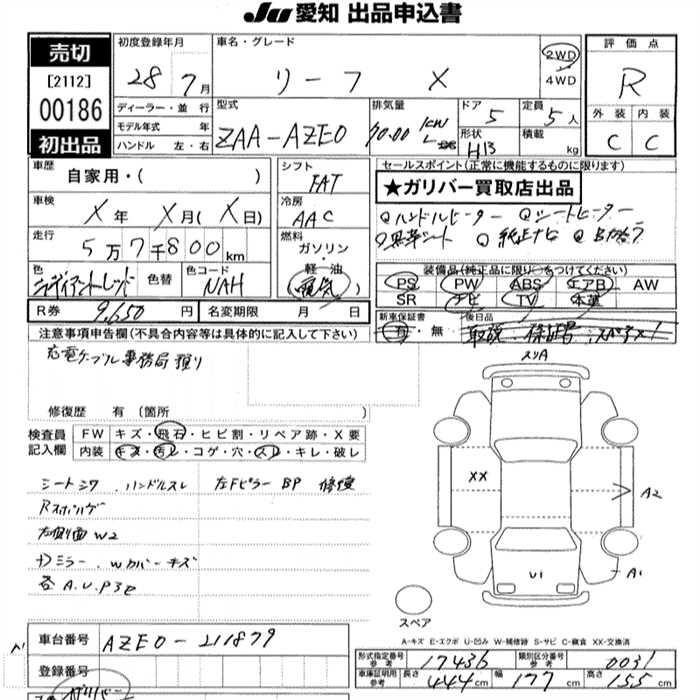 JU 愛知 出品申込書
売切
[2112]
00186
初出品
初度登録年月
28 7月
ディーラー・並行
モデル年式 年
ハンドル 左・右
車名・グレード
リーフ X
2WD
4WD
型式
ZAA-AZE0
排気量
ドア 5
形状 HB
定員 5人
積載 kg
評価点
R
外装 内装
C C
車歴
自家用・( )
車検
X年 X月(X日)
走行
5万7千800km
色
色替
色コード
NAH
シフト
FAT
冷房
AAC
燃料
ガソリン・
軽油
電気
セールスポイント(正常に機能するものに限ります)
★ガリバー買取店出品
ハンドルヒーター シートヒーター
黒革シート 純正ナビ
装備品(純正品に限り○をつけてください)
PS PW ABS エアB AW
SR ナビ TV 本革
R券 9,650円
名変期限 月 日
新車保証書
有・無
後日品
取説、保証書、スペアキー
注意事項申告欄(不具合内容等は具体的に記入して下さい)
充電ケーブル事務局預り
修復歴 有 (箇所 )
検査員
記入欄
FW キズ・飛石・ヒビ割・リペア跡・X要
内装 キズ・汚レ・コゲ・穴・スレ・キレ・破レ
シートシワ、ハンドルスレ 左Fピラー BP 修復
右側面 W2
ドミラー、Wカバーキズ
各A.U.P3ヶ
スリA
XX
A2
U1
A1
スペア
A-キズ E-エクボ U-凹み W-補修跡 S-サビ C-腐食 XX-交換済
車台番号 AZE0-211879
登録番号
形式指定番号 参考 17436
類別区分番号 参考 0031
車庫証明用 参考 長さ 444cm 幅 177cm 高さ 155cm
ガリバー